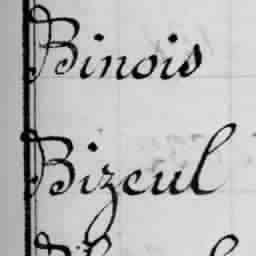 Binois
Bizeul